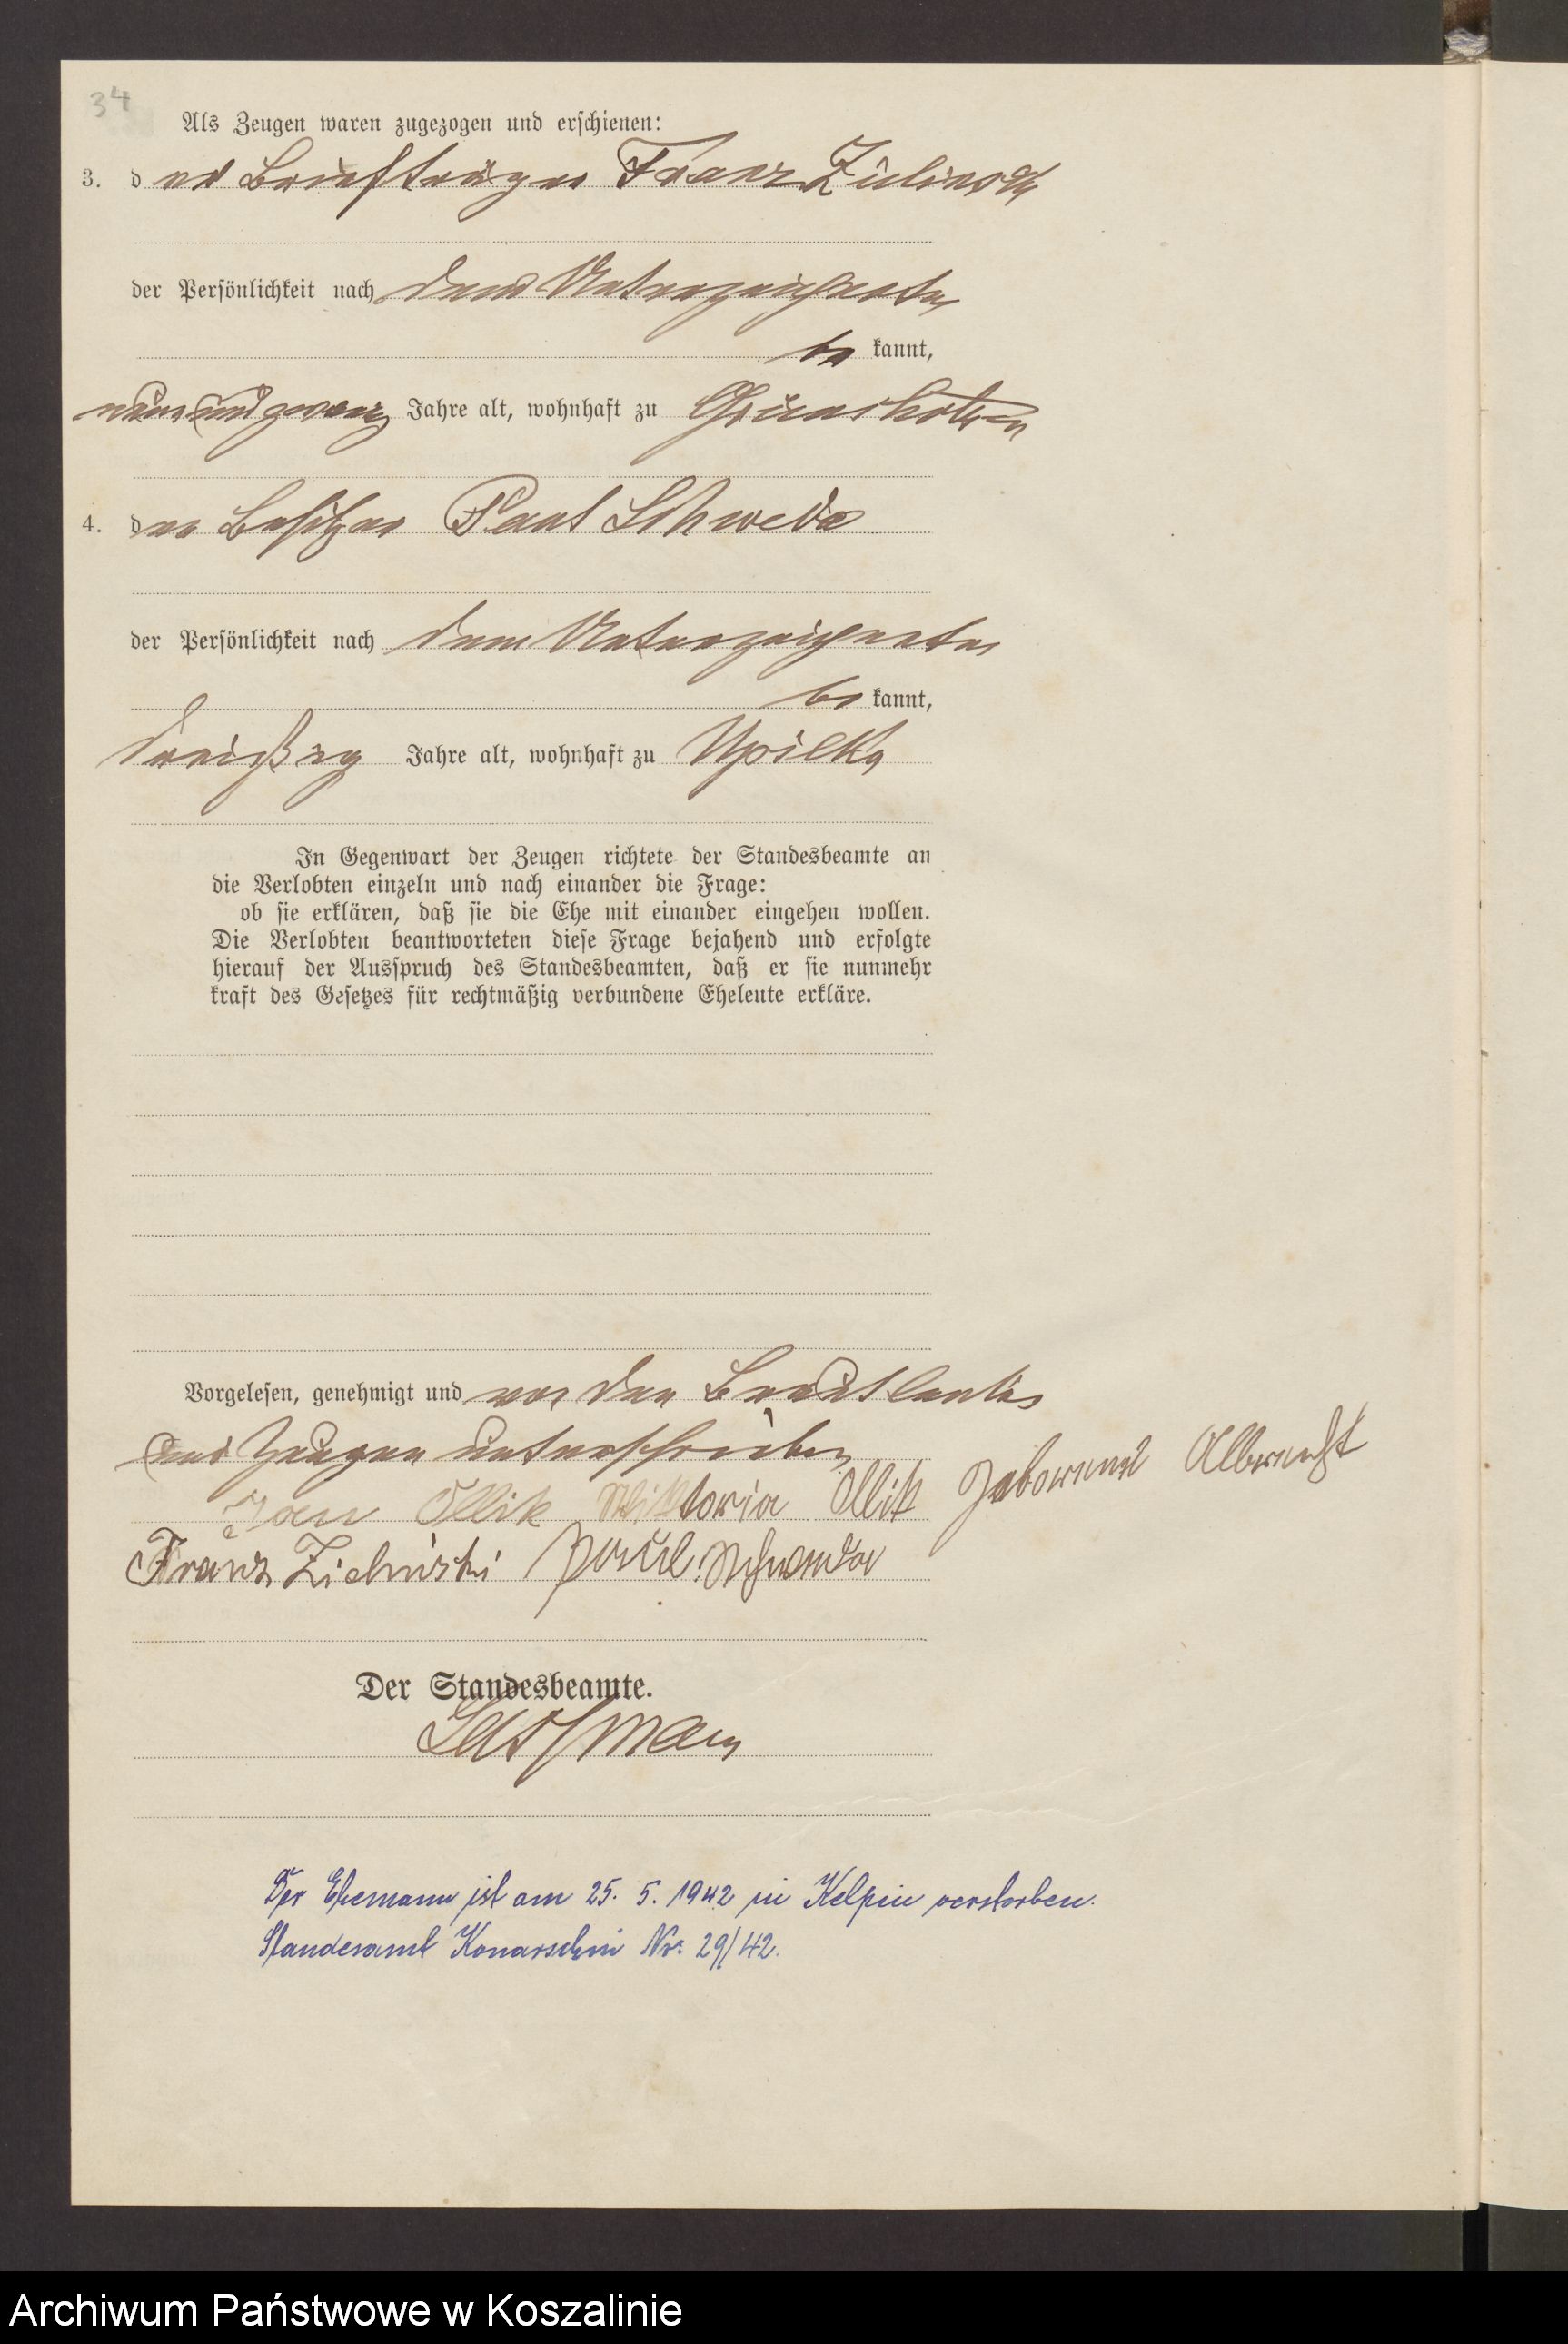 34
Als Zeugen waren zugezogen und erschienen:
3. der Briefträger Franz Zielinski
der Persönlichkeit nach dem Unterzeichneten
be kannt,
neunundzwanzig Jahre alt, wohnhaft zu
4. der Besitzer Paul Schweda
der Persönlichkeit nach dem Unterzeichneten
be kannt,
dreißig Jahre alt, wohnhaft zu Upilka
In Gegenwart der Zeugen richtete der Standesbeamte an
die Verlobten einzeln und nach einander die Frage:
ob sie erklären, daß sie die Ehe mit einander eingehen wollen.
Die Verlobten beantworteten diese Frage bejahend und erfolgte
hierauf der Ausspruch des Standesbeamten, daß er sie nunmehr
kraft des Gesetzes für rechtmäßig verbundene Eheleute erkläre.
Vorgelesen, genehmigt und von den Brautleuten
und Zeugen unterschrieben
Jan Ollik Wiktoria Ollik geborene Albrecht
Franz Zielinski Paul Schweda
Der Standesbeamte.
Der Ehemann ist am 25. 5. 1942 in Kelpin verstorben.
Standesamt Konarschin Nr. 29/42.
Archiwum Państwowe w Koszalinie